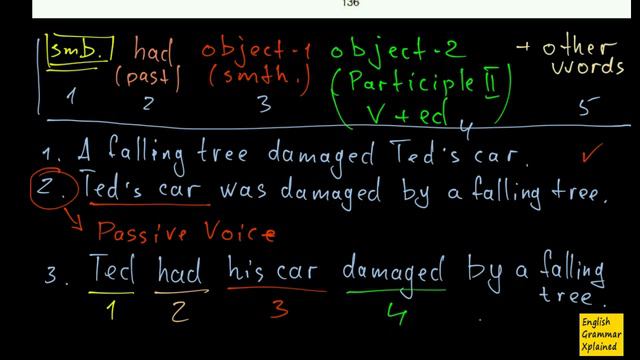 136
smb. had object-1 object-2 + other
(past) (smth.) (Participle II words
V+ed)
1 2 3 4 5
1. A falling tree damaged Ted's car. ✓
2. Ted's car was damaged by a falling tree.
Passive Voice
3. Ted had his car damaged by a falling
tree.
1 2 3 4
English
Grammar
Xplained